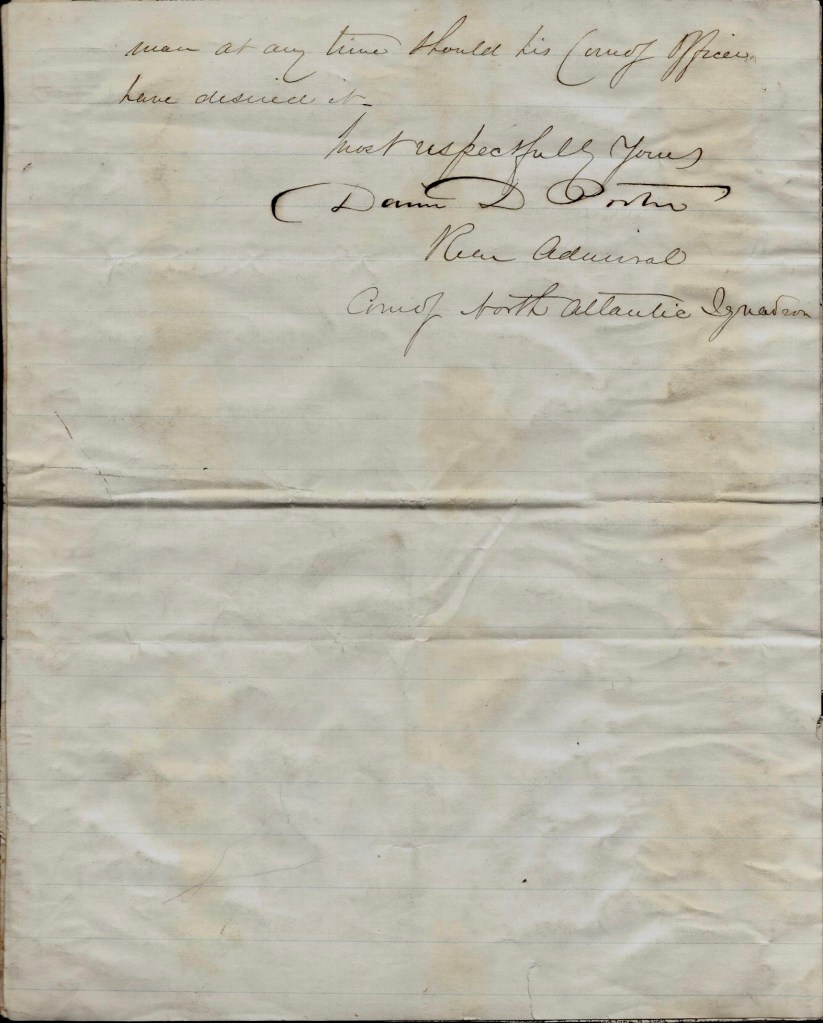 man at any time should his Comdg Officer
have desired it -
Most respectfully Yours
David D Porter
Rear Admiral
Comdg North Atlantic Squadron